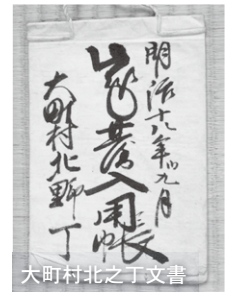 明治十八年九月
入用帳
大町村北丁
大町村北之丁文書